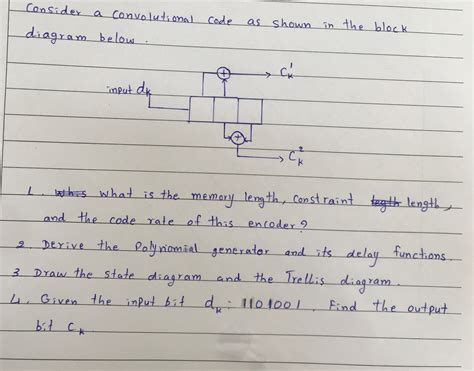 Consider a convolutional code as shown in the block
diagram below.
C_k^1
input d_k
C_k^2
1. what is the memory length, constraint length,
and the code rate of this encoder?
2. Derive the Polynomial generator and its delay functions.
3. Draw the state diagram and the Trellis diagram.
4. Given the input bit d_k: 1101001. Find the output
bit C_k